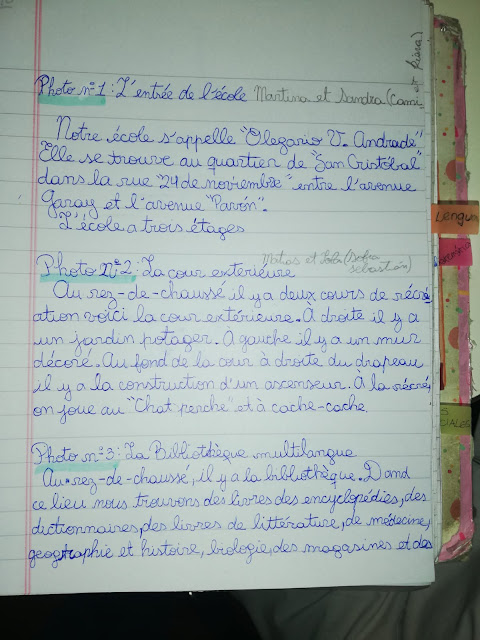 Photo n°1: L'entrée de l'école Martina et Sandra (Cami et Kiara)
Notre école s'appelle "Olegario V. Andrade".
Elle se trouve au quartier de "San Cristóbal"
dans la rue "24 de noviembre" entre l'avenue
Garay et l'avenue "Pavón".
L'école a trois étages
Photo n°2: La cour exterieure Matias et (Sofia sebastián)
Au rez-de-chaussé il y a deux cours de récré
ation voici la cour extérieure. A droite il y a
un jardin potager. À gauche il y a un mur
décoré. Au fond de la cour à droite du drapeau
il y a la construction d'un ascenseur. À la récré,
on joue au "Chat perche" et à cache-cache.
Photo n°3: La Bibliothèque multilangue
Au rez-de-chaussé, il y a la bibliothèque. Dand
ce lieu nous trouvons des livres des encyclopédies, des
dictionnaires, des livres de littérature, de médecine,
geographie et histoire, biologie, des magasines et des
Lengua
CIALES